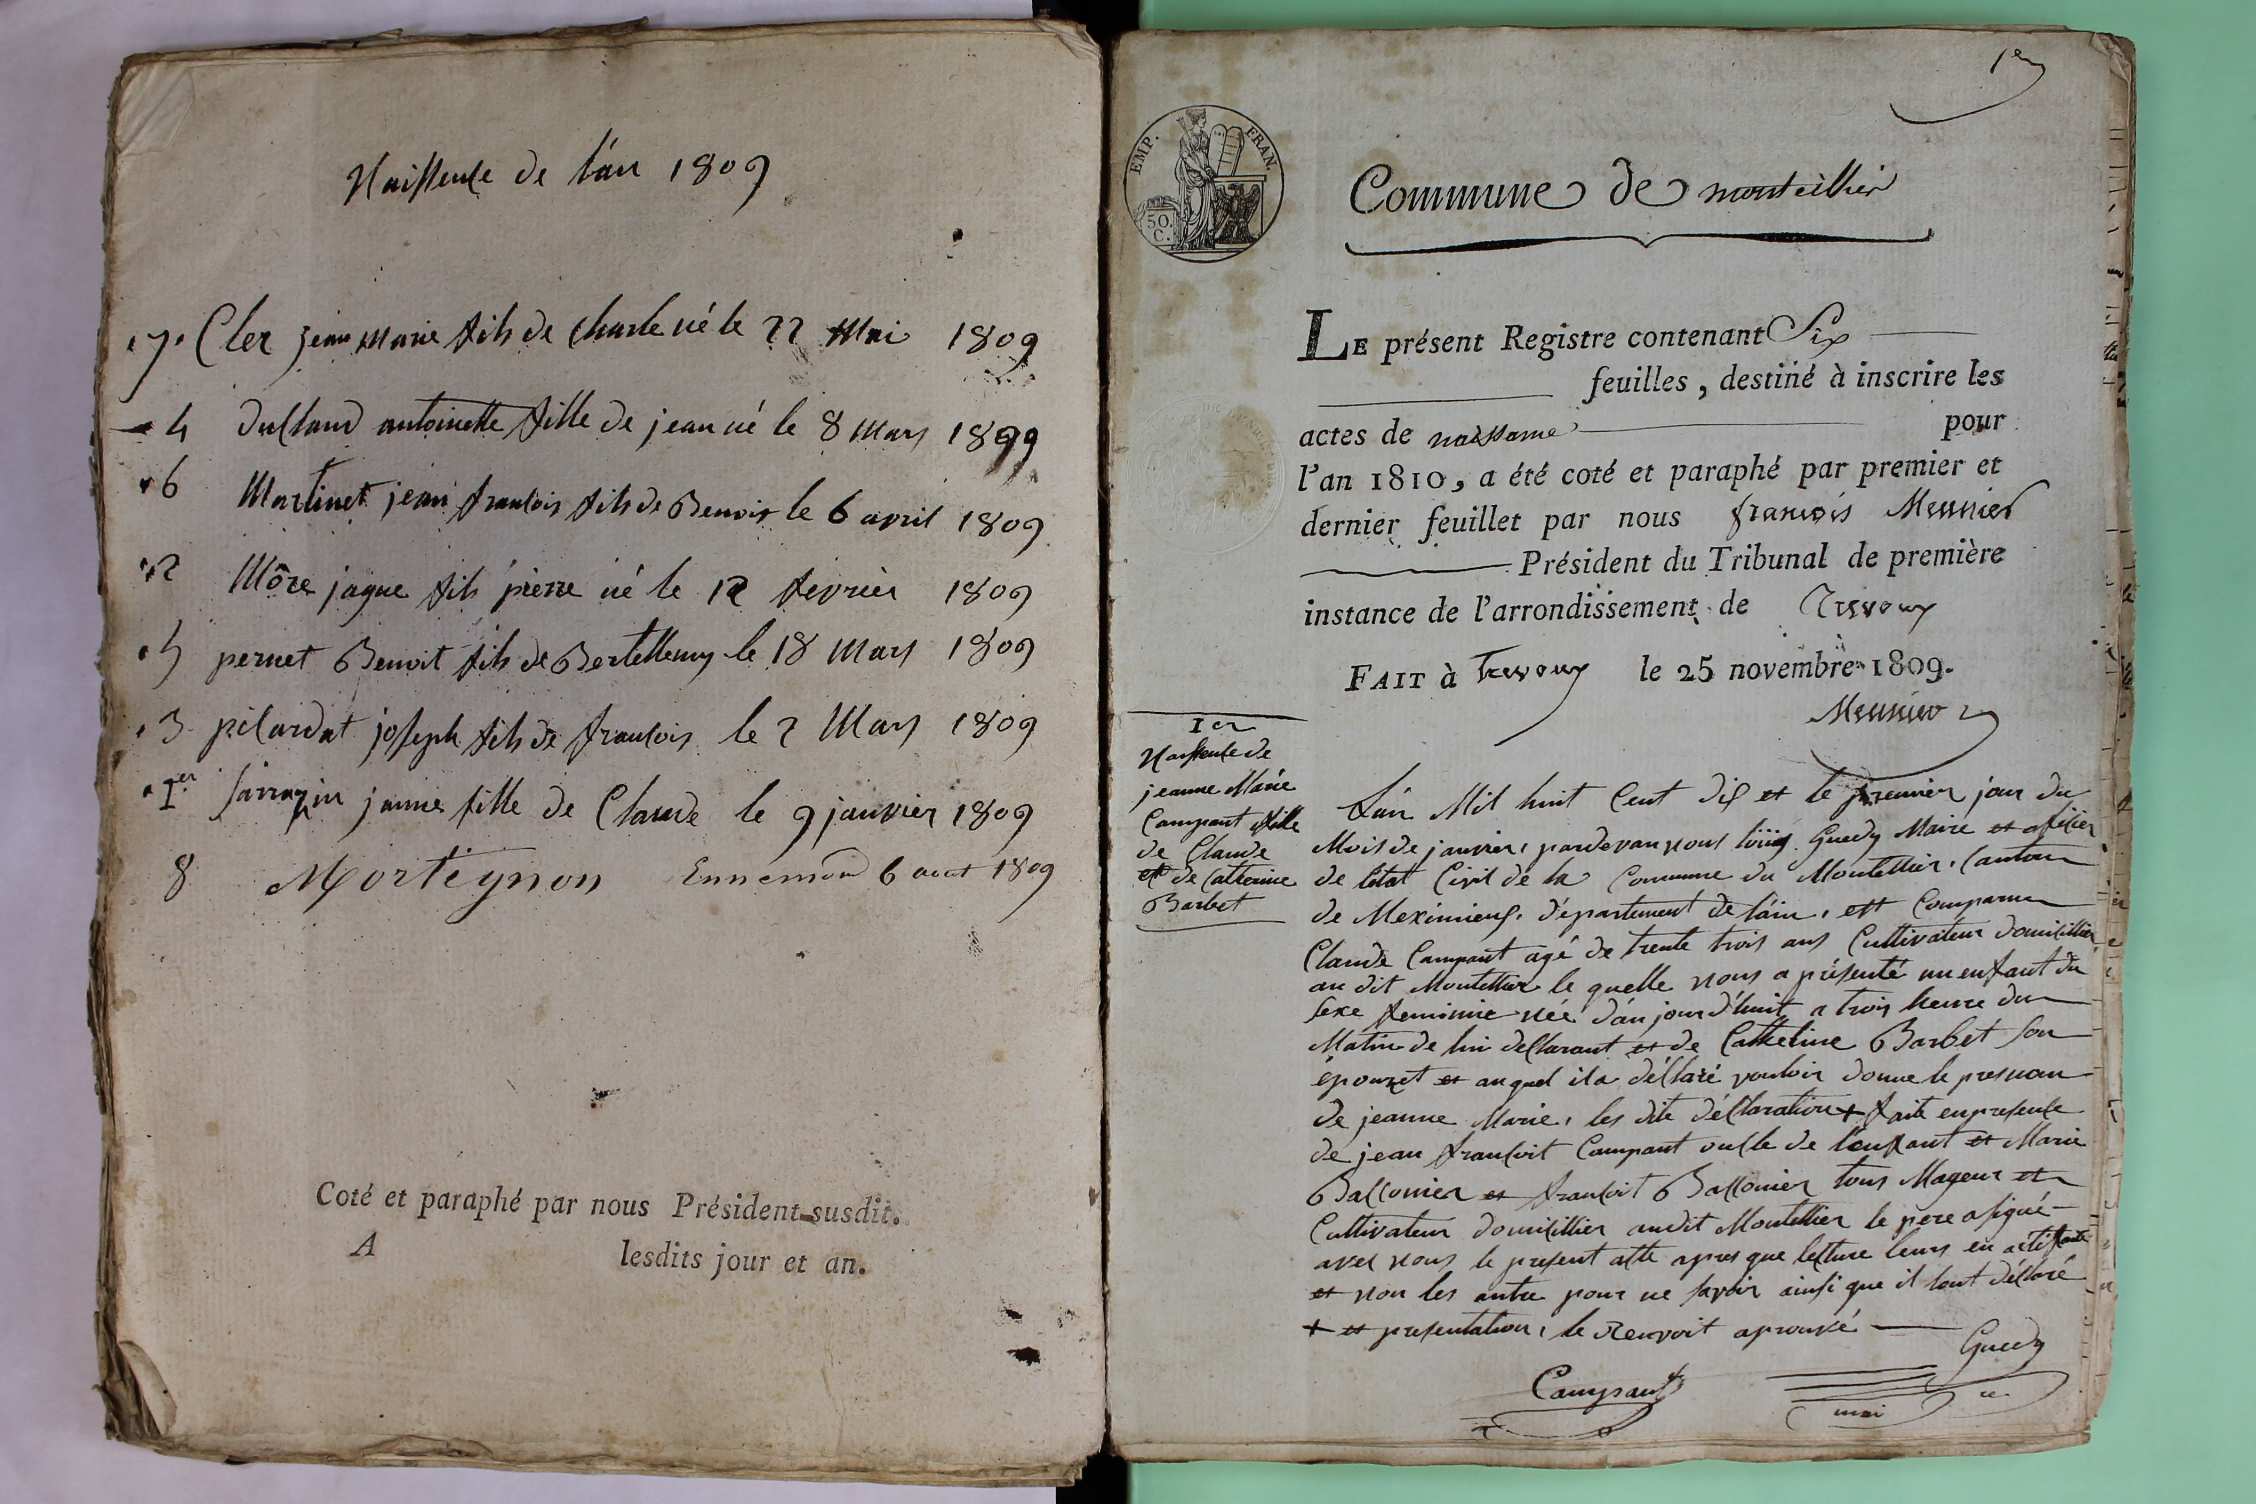 Naissence de l'an 1809
.7. Cler jean Marie fils de charle né le 22 Mai 1809
4 Duclaud antoinette fille de jean né le 8 Mars 1809
6 Martinet jean francois fils de Benoit le 6 avril 1809
2 Môre jaque fils pierre né le 12 fevrier 1809
5 pernet Benoit fils de Bertellemy le 18 Mars 1809
3 pilardat joseph fils de francois le 2 Mars 1809
1er Sarrazin janne fille de Claude le 9 janvier 1809
8 Morteynon Ennemond 6 aout 1809
Coté et paraphé par nous Président susdit.
A lesdits jour et an.
1er
EMP. FRAN.
50. C.
Commune de monteillier
LE présent Registre contenant Six
feuilles, destiné à inscrire les
actes de naissance pour
l'an 1810, a été coté et paraphé par premier et
dernier feuillet par nous françois Meunier
Président du Tribunal de première
instance de l'arrondissement de Trevoux
FAIT à Trevoux le 25 novembre 1809.
Meunier
1er
Naissence de
jeanne Marie
Campant fille
de Claude
et de Catherine
Barbet
L'an Mil huit Cent dix et le premier jour du
Mois de janvier, pardevan nous Guedy Maire et oficier
de létat Civil de la Commune du Montellier, Canton
de Meximieux, département de l'ain, est Comparu
Claude Campant agé de trente trois ans Cultivateur domicillier
au dit Montellier le quelle nous a présenté un enfant du
sexe feminine née d'au jourd'huit a trois heure du
Matin de lui declarant et de Catherine Barbet son
épouzet et auquel il a déclaré vouloir donne le presnom
de jeanne Marie, les dite déclaration + faite en presence
de jean francoit Campant oncle de l'enfant et Marie
Ballonier et francoit Ballonier tous Mageur et
Cultivateur domicillier audit Montellier le pere a signé
avec nous le present acte apres que lecture leurs en a été faite
et non les autre pour ne savoir ainsi que il lont déclaré
+ et presentation, le Renvoit aprouvé
Guedy
Campant